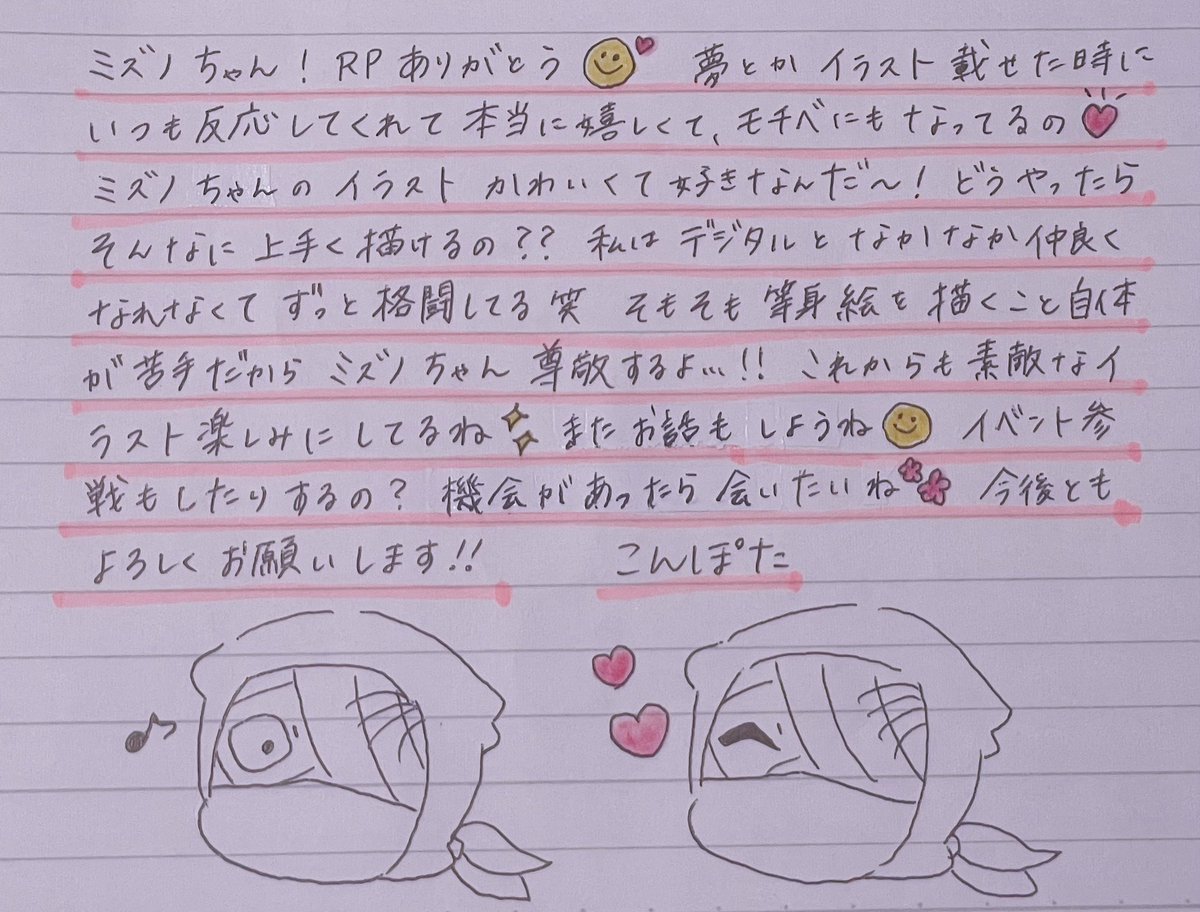 ミズノちゃん！RPありがとう 夢とか イラスト 載せた時に
いつも反応してくれて本当に嬉しくて、モチベにもなってるの
ミズノちゃんの イラスト かわいくて好きなんだ〜！どうやったら
そんなに上手く描けるの？？ 私はデジタルとなかなか仲良く
なれなくて ずっと格闘してる笑 そもそも等身絵を描くこと自体
が苦手だから ミズノちゃん 尊敬するよ…！！ これからも素敵なイ
ラスト楽しみにしてるね またお話もしようね イベント参
戦もしたりするの？ 機会があったら会いたいね 今後とも
よろしくお願いします！！ こんぽた